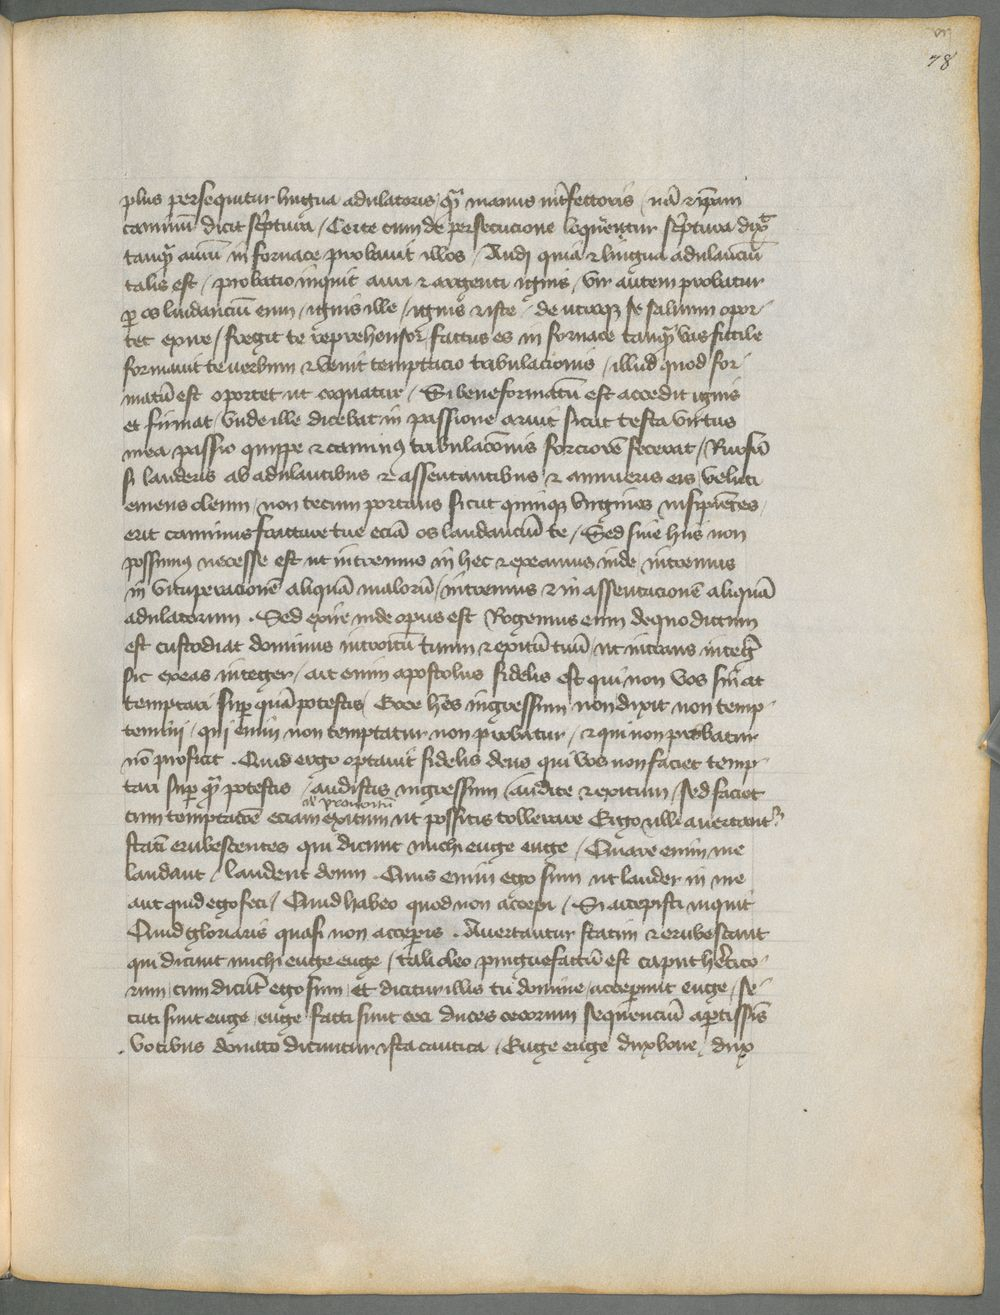 78
plus persequitur lingua adulatoris / qᷓ manus int̄fectoris / nā ⁊ ip̄am
caminū dicit sc̄ptura / Certe cum de persecucione loqueretur sc̄ptura dix̄
tanqᷓ aurū in fornace probauit illos / Audi quia ⁊ lingua adulanciū
talis est / probatio inquit auri ⁊ argenti ignis / vir autem probatur
ꝑ os laudanciū eum / ignis ille / ignis ⁊ iste / de utroqꝫ te saluum opor-
tet exire / fregit te reprehensor factus es in fornace tanqᷓ vas fictile
formauit te uerbum ⁊ venit temptacio tribulacionis / illud quod for-
matū est oportet ut coquatur / Si bene formatū est accedit ignis
et firmat / vnde ille dicebat in passione aruit sicut testa virtus
mea passio quippe ⁊ caminꝰ tribulacōnis forciorē fecerat / Rursū
si lauderis ab adulantibus ⁊ assentantibus ⁊ annueris eis / veluti
emens oleum / non tecum portans sicut quinqꝫ virgines insipiētes /
erit caminus fracture tue eciā os laudanciū te / Sed sine hiis non
possumꝰ necesse est ut intremus in hec ⁊ exeamus inde intremus
in vituperacionē aliquā malorū / intremus ⁊ in assentacionē aliquā
adulatorum . Sed exire inde opus est Rogemus eum de quo dictum
est custodiat dominus introitū tuum ⁊ exitū tuū / ut intrans inteḡ
sic exeas integer / ait enim apostolus fidelis est qui non vos sinat
temptari suꝑ quā potestis / Ecce hēs ingressum non dixit non temp-
temini / qui enim non temptatur non probatur / ⁊ qui non probatur
nō proficit . Quid ergo optauit fidelis deus qui vos non faciet temp-
tari suꝑ qᷓ potestis / audistis ingressum / audite ⁊ exitum / sed faciet
cum temptacōe eciam exitum ut possitis tollerare Ergo ⁊ illi auertant̄
statī erubescentes qui dicunt michi euge euge / Quare enim me
laudant / laudent deum . Quis enim ego sum ut lauder in me
aut quid ego feci / Quid habeo quod non accepi / Si accepisti inquit
Quid gloriaris quasi non acceperis . Auertantur statim ⁊ erubescant
qui dicunt michi euge euge / tali oleo pinguefactū est caput hēretico-
rum / cum dicūt ego sum / et dicitur illis tu domine / acceperunt euge / se-
cuti sunt euge / euge facti sunt ceci duces cecorum sequenciū aꝑtissīs
. vocibus donato dicuntur ista cantica / Euge euge dux bone / dux